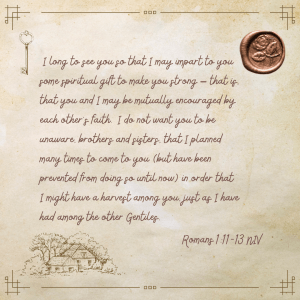 I long to see you so that I may impart to you
some spiritual gift to make you strong — that is,
that you and I may be mutually encouraged by
each other's faith. I do not want you to be
unaware, brothers and sisters, that I planned
many times to come to you (but have been
prevented from doing so until now) in order that
I might have a harvest among you, just as I have
had among the other Gentiles.
Romans 1:11-13 NIV